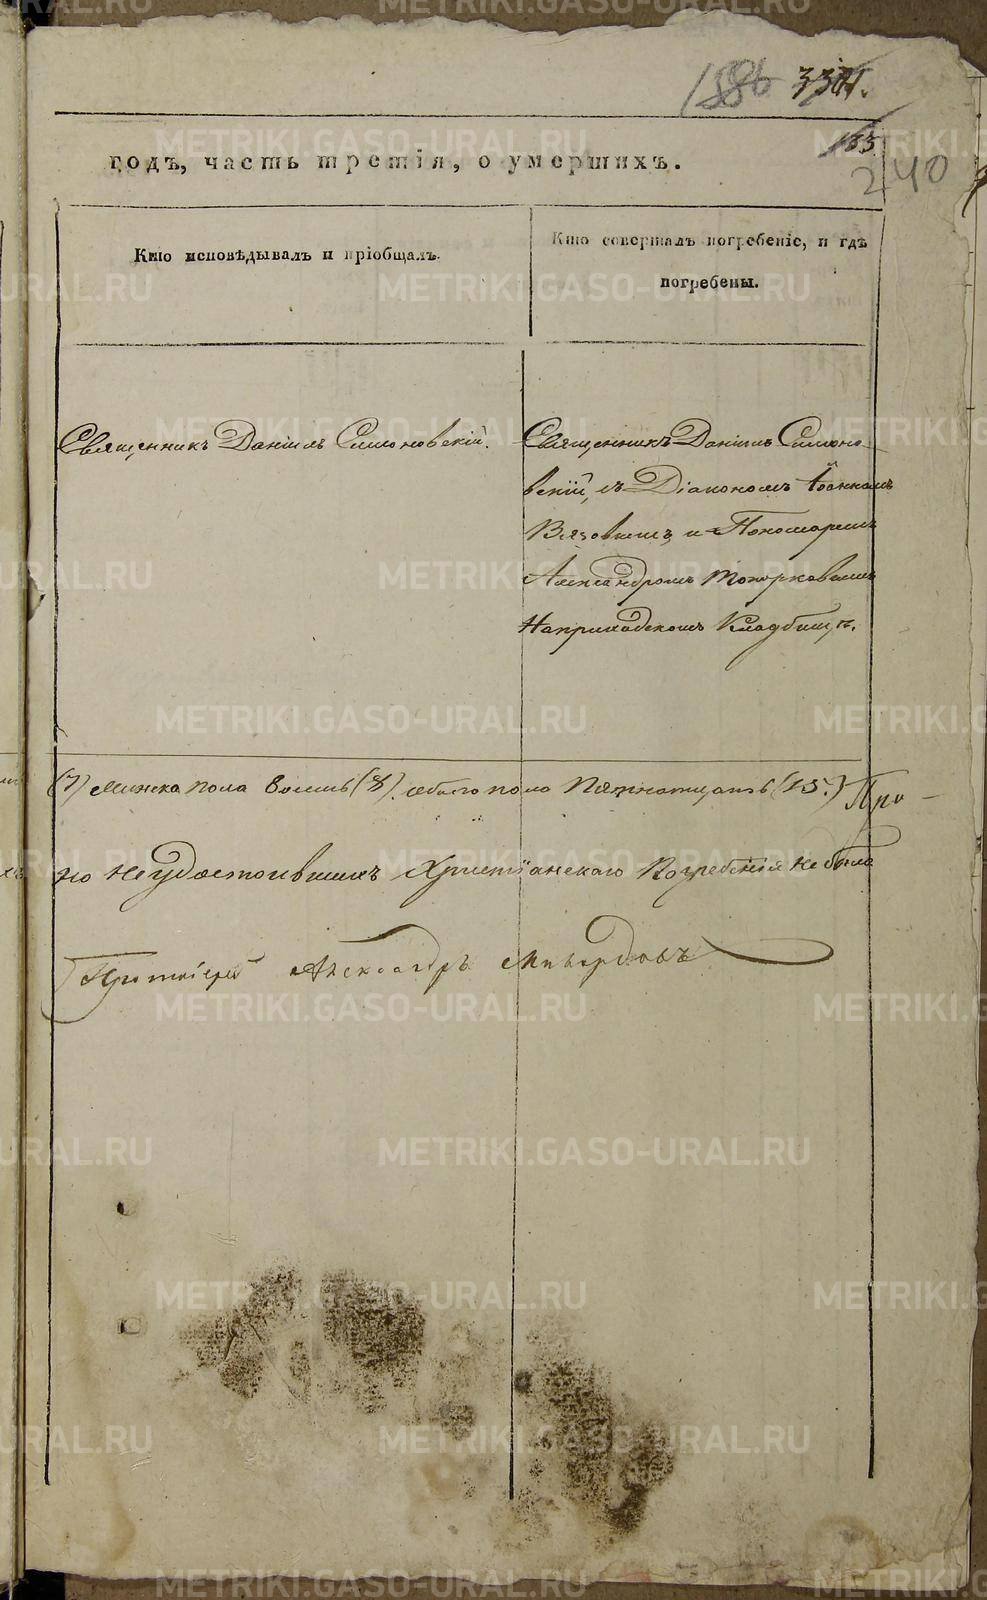 1886 3301.
133
240
годъ, часть третія, о умершихъ.
Кто исповѣдывалъ и пріобщалъ.
Кто совершалъ погребеніе, и гдѣ
погребены.
Священникъ Даніилъ Симоновскій.
Священникъ Даніилъ Симоно-
вскій, съ Діакономъ Іоанномъ
Вязовымъ и Пономаремъ
Александромъ Топорковымъ
На приходскомъ Кладбищѣ.
(7) Женска пола восемь (8). обоего пола Пятнатцать (15.) При-
но неудостоившихъ Христіанскаго Погребенія не было
Протоіерей Александръ
METRIKI.GASO-URAL.RU